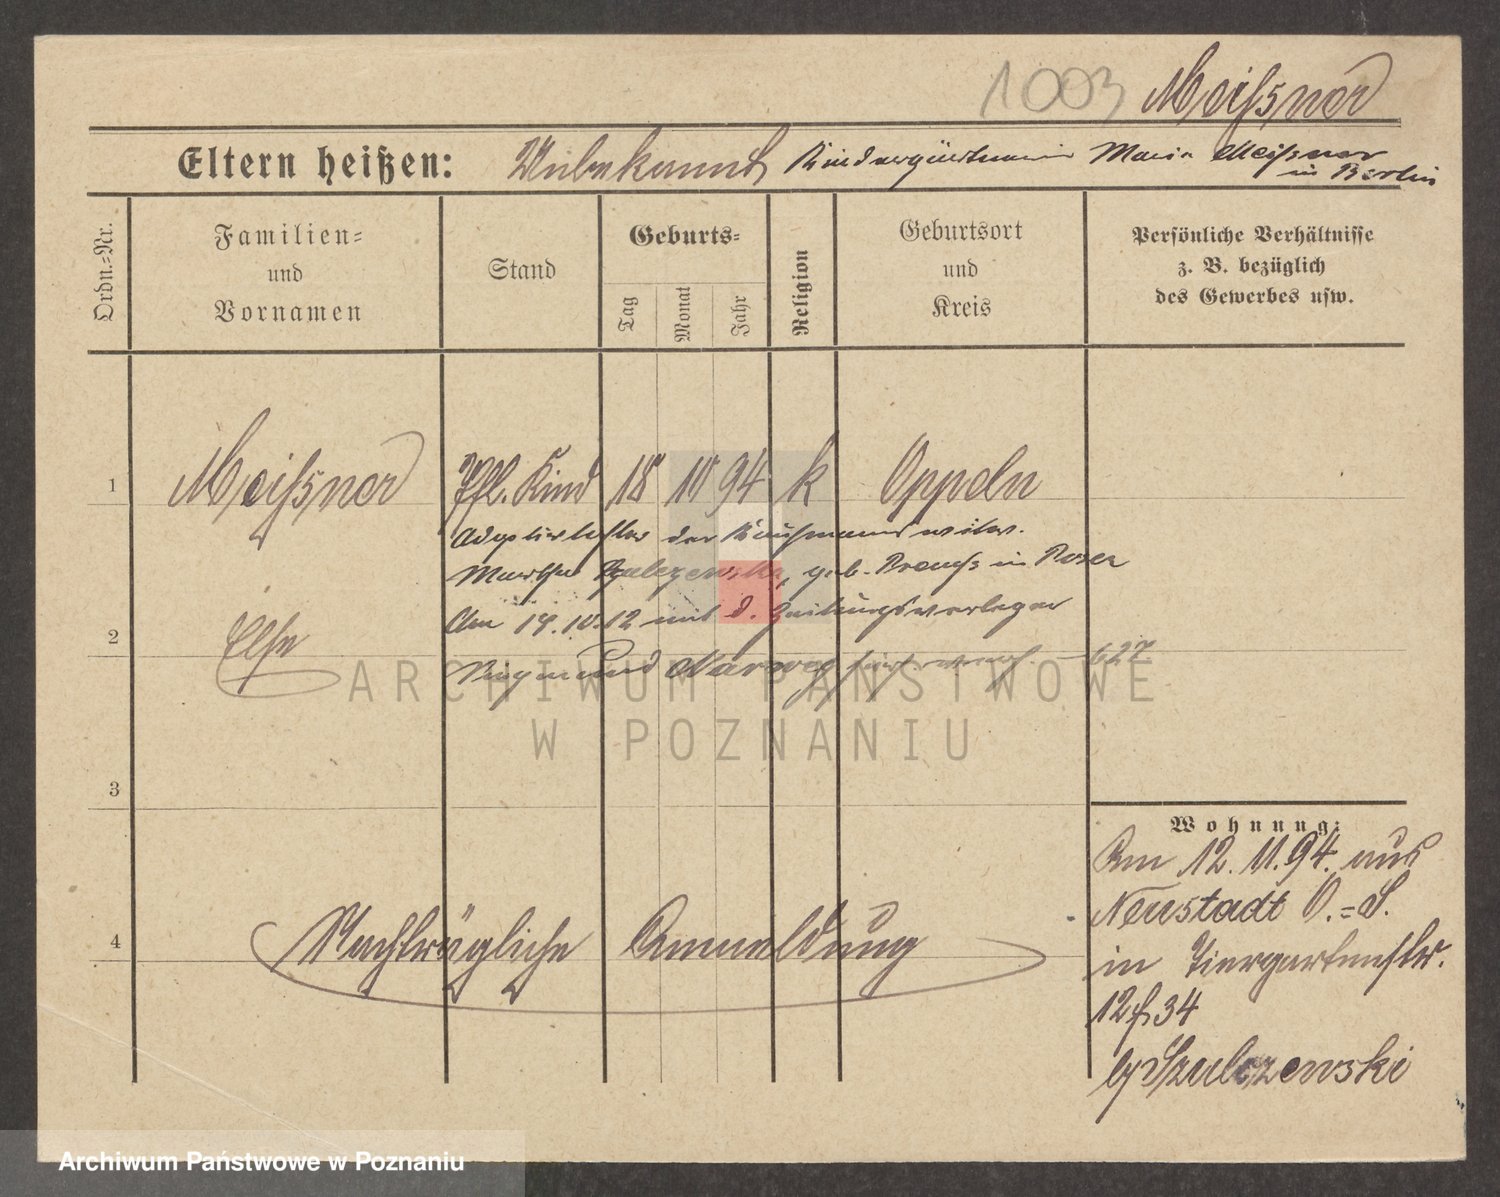 1003 Meißner
Eltern heißen: Unbekannt Kindergärtnerin Maria Meißner
in Berlin
Ordn.=Nr.
Familien=
und
Vornamen
Stand
Geburts=
Tag
Monat
Jahr
Religion
Geburtsort
und
Kreis
Persönliche Verhältnisse
z. B. bezüglich
des Gewerbes usw.
1 Meißner Pfl. Kind 18 10 94 k Oppeln
der Kaufmannswitw.
Martha Szulczewska, geb. in Posen
2 Else
Am 14.10.12 mit d. Zeitungsverleger
Sigmund 627
ARCHIWUM PAŃSTWOWE
W POZNANIU
3
Wohnung:
Am 12.11.94. aus
Neustadt O.=S.
4 Nachträgliche Anmeldung
in Tiergartenstr.
12 34
b/ Szulczewski
Archiwum Państwowe w Poznaniu